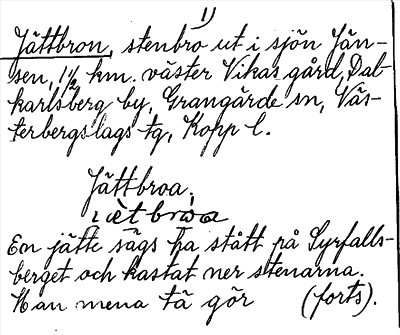 1)
Jättbron, stenbro ut i sjön Jän-
sen, 1½ km. väster Vikas gård, Dal-
karlsberg by, Grangärde sn, Väs-
terbergslags tg, Kopp l.
Jättbroa.
En jätte sägs ha stått på Syrfalls-
berget och kastat ner stenarna.
Han mena tä gör (forts).